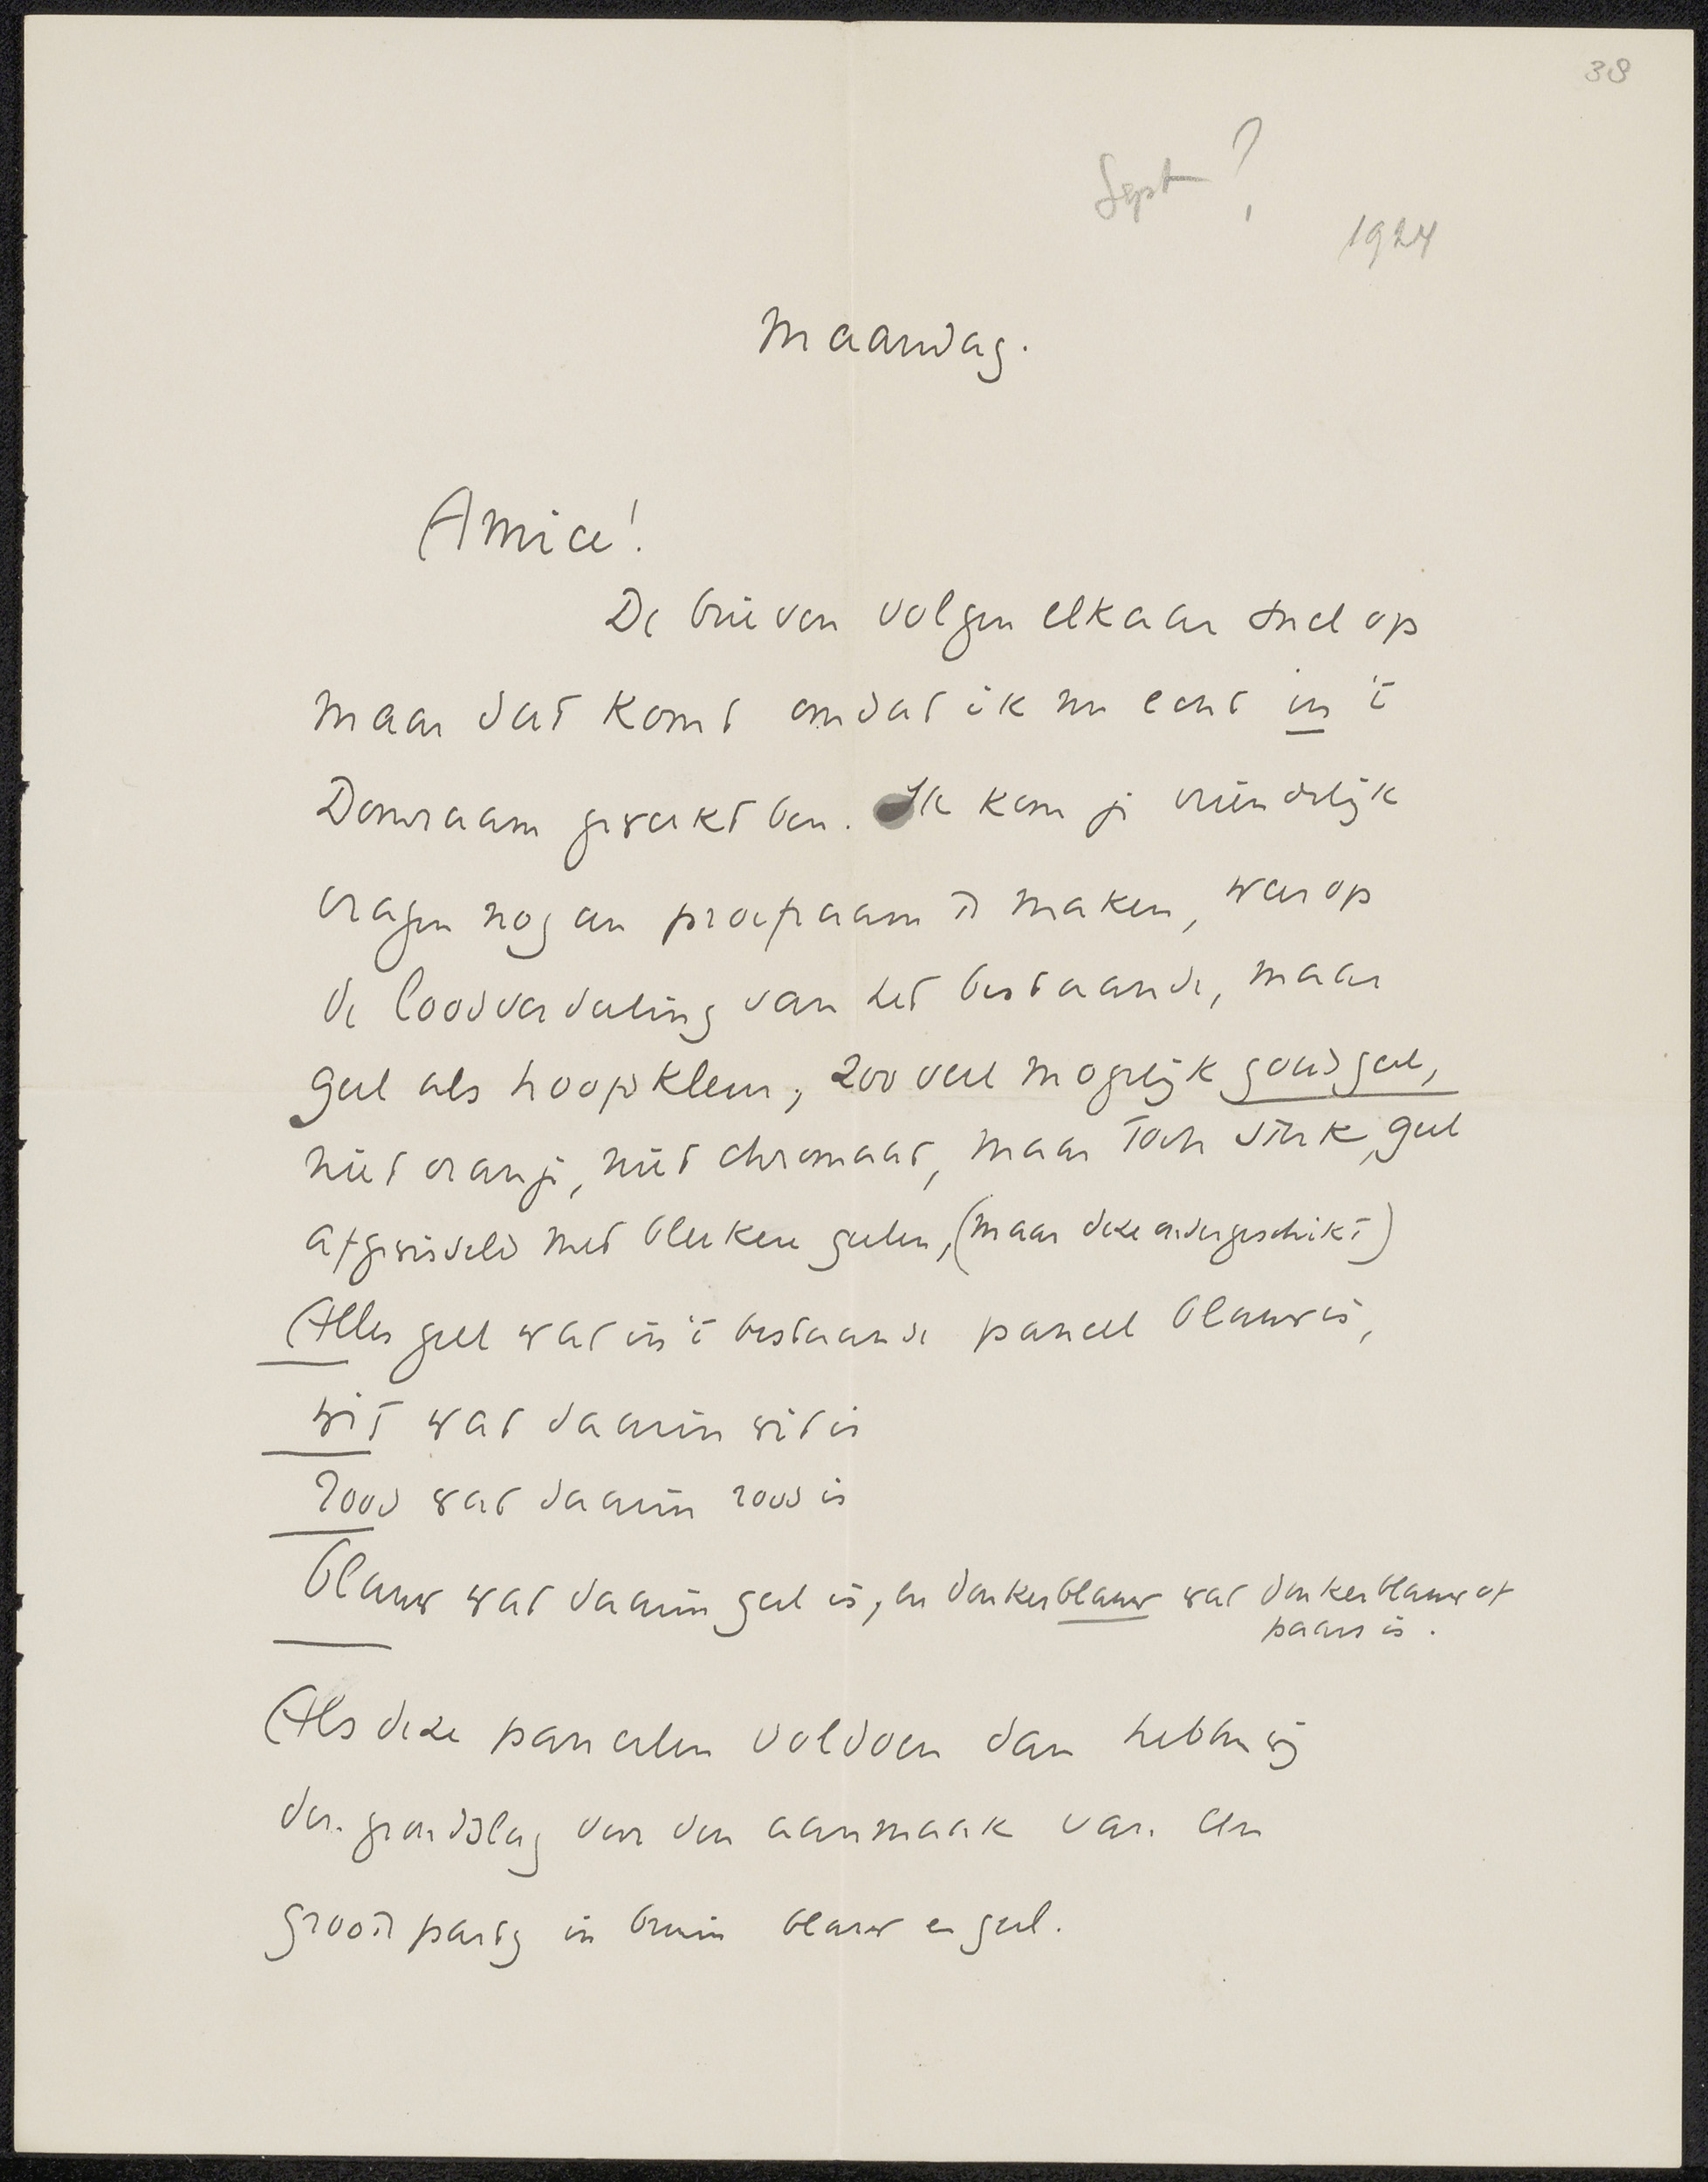 38
Sept ?
1924
Maandag.
Amice!
De brieven volgen elkaar snel op
maar dat komt omdat ik nu echt in 't
Domraam gewerkt ben. Ik kom je vriendelijk
vragen nog een proefraam te maken, waarop
de loodverdeeling van het bestaande, maar
geel als hoofdkleur, zooveel mogelijk goudgeel,
niet oranje, niet chromaat, maar toch sterk geel
afgewisseld met bleekere geelen, (maar deze ondergeschikt)
Alles geel wat in 't bestaande paneel blauw is,
wit wat daarin wit is
rood wat daarin rood is
blauw wat daarin geel is, en donkerblauw wat donkerblauw of
paars is.
Als deze paneelen voldoen dan hebben wij
den grondslag voor den aanmaak van een
groote partij in bruin blauw en geel.